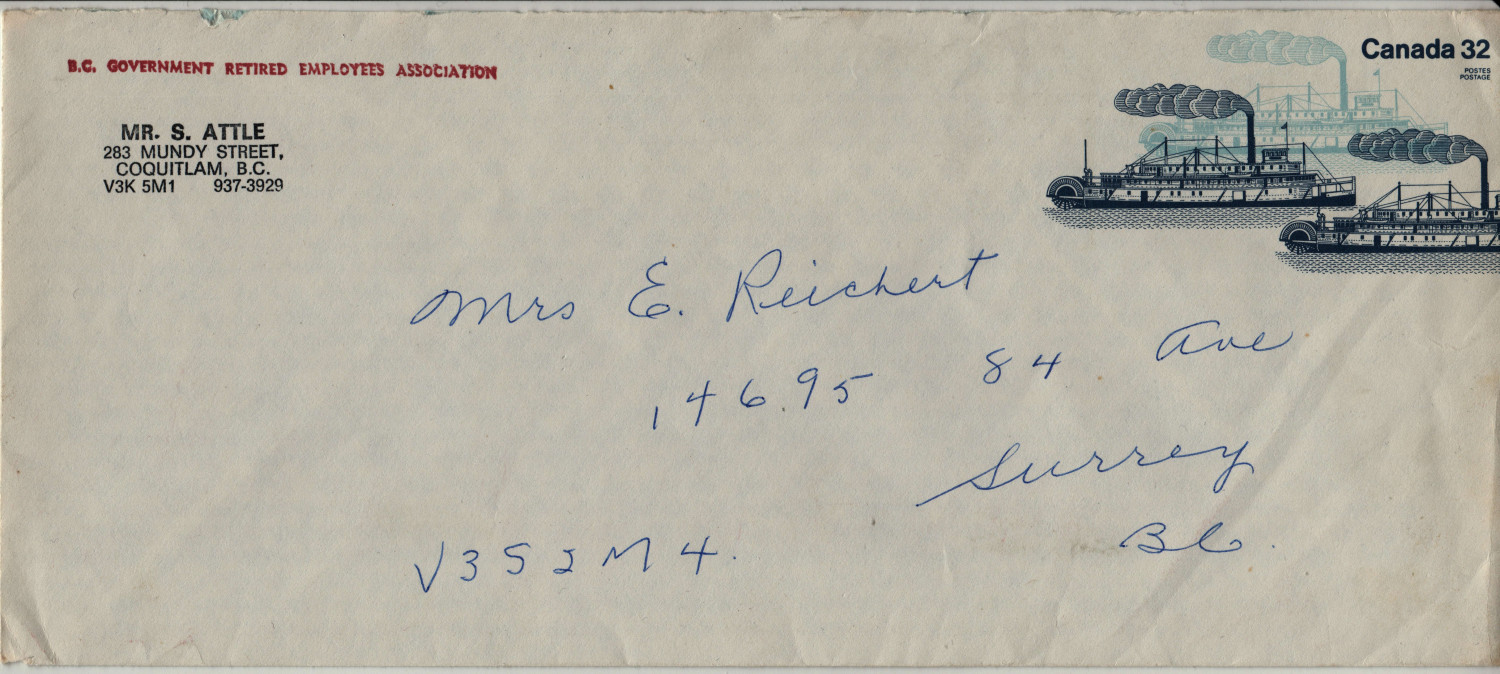 B.C. GOVERNMENT RETIRED EMPLOYEES ASSOCIATION
MR. S. ATTLE
283 MUNDY STREET,
COQUITLAM, B.C.
V3K 5M1 937-3929
Canada 32
POSTES
POSTAGE
Mrs E. Reichert
14695 84 Ave
Surrey
BC.
V3S 2M4.